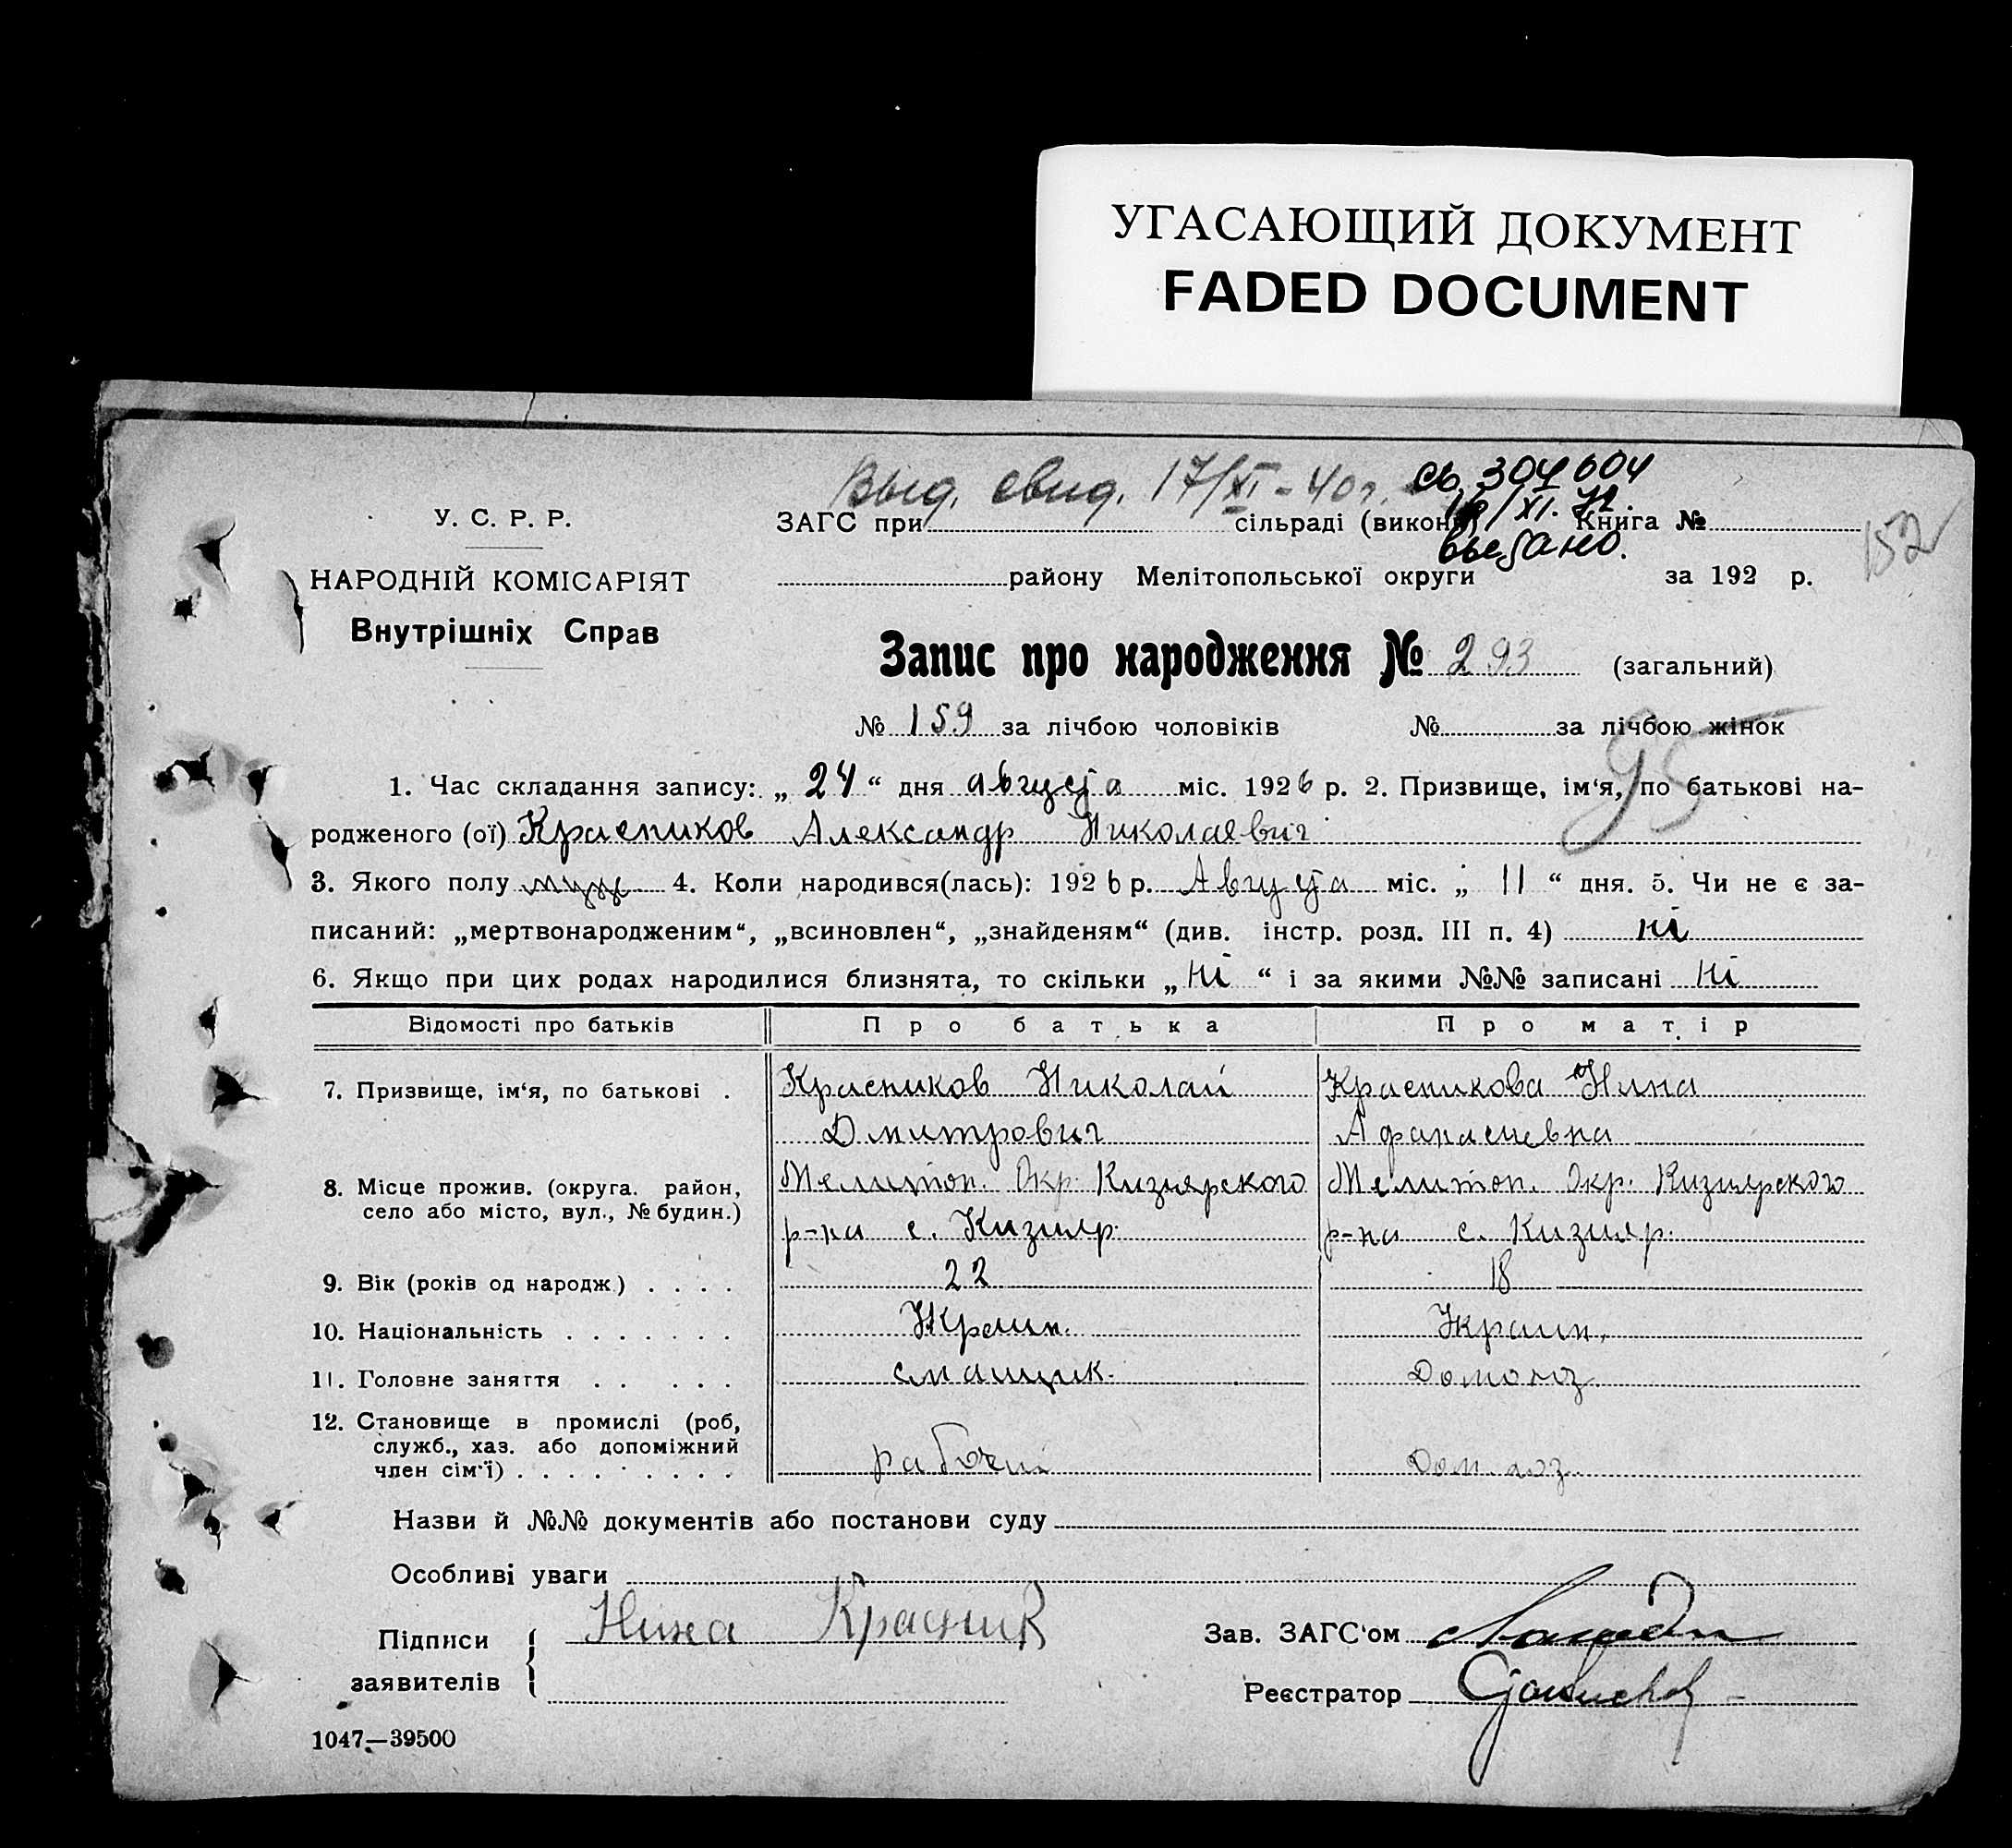 УГАСАЮЩИЙ ДОКУМЕНТ
FADED DOCUMENT
Выд. свид. 17/XI-40г.
св. 304604
16/XI.72.
выдано.
152
У. С. Р. Р.
НАРОДНІЙ КОМІСАРІЯТ
Внутрішніх Справ
ЗАГС при сільраді (викон Книга №
району Мелітопольської округи за 192 р.
Запис про народження № 293 (загальний)
№ 159 за лічбою чоловіків № за лічбою жінок
95
1. Час складання запису: „ 24 “ дня августа міс. 1926 р. 2. Призвище, ім‘я, по батькові на-
родженого (ої) Красников Александр Николаевич
3. Якого полу муж 4. Коли народився(лась): 1926 р. Августа міс. „ 11 “ дня. 5. Чи не є за-
писаний: „мертвонародженим“, „всиновлен“, „знайденям“ (див. інстр. розд. III п. 4) ні
6. Якщо при цих родах народилися близнята, то скільки „ ні “ і за якими №№ записані ні
Відомості про батьків Про батька Про матір
7. Призвище, ім‘я, по батькові . Красников Николай Красникова Нина
Дмитрович Афанасиевна
8. Місце прожив. (округа. район, Мелитоп. Окр. Кизиярского Мелитоп. Окр. Кизиярского
село або місто, вул., № будин.) р-на с. Кизияр. р-на с. Кизияр.
9. Вік (років од народж) . . . . 22 18
10. Національність . . . . . . . Украин. Украин.
11. Головне заняття . . . . . смащик. Домохоз.
12. Становище в промислі (роб,
служб., хаз. або допоміжний
член сім‘ї) . . . . . . . . . рабочий Дом. хоз.
Назви й №№ документів або постанови суду
Особливі уваги
Підписи Нина Красник Зав. ЗАГС‘ом
заявителів Реєстратор
1047—39500